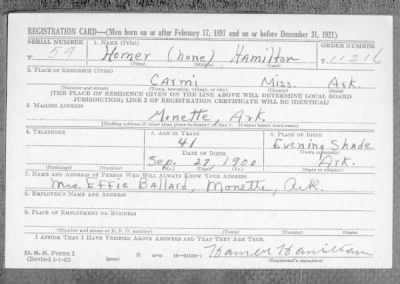 REGISTRATION CARD—(Men born on or after February 17, 1897 and on or before December 31, 1921)
SERIAL NUMBER 1. NAME (Print) ORDER NUMBER
59 Homer (none) Hamilton 11216
(First) (Middle) (Last)
2. PLACE OF RESIDENCE (Print)
CARmi Miss. Ark.
(Number and street) (Town, township, village, or city) (County) (State)
[THE PLACE OF RESIDENCE GIVEN ON THE LINE ABOVE WILL DETERMINE LOCAL BOARD
JURISDICTION; LINE 2 OF REGISTRATION CERTIFICATE WILL BE IDENTICAL]
3. MAILING ADDRESS
Monette, Ark.
[Mailing address if other than place indicated on line 2. If same insert word same]
4. TELEPHONE 5. AGE IN YEARS 6. PLACE OF BIRTH
41 Evening Shade
DATE OF BIRTH (Town or county)
Sep. 27, 1900 Ark.
(Exchange) (Number) (Mo.) (Day) (Yr.) (State or country)
7. NAME AND ADDRESS OF PERSON WHO WILL ALWAYS KNOW YOUR ADDRESS
Mrs. Effie Ballard, Monette, Ark.
8. EMPLOYER'S NAME AND ADDRESS
9. PLACE OF EMPLOYMENT OR BUSINESS
(Number and street or R. F. D. number) (Town) (County) (State)
I AFFIRM THAT I HAVE VERIFIED ABOVE ANSWERS AND THAT THEY ARE TRUE.
D. S. S. FORM 1 Homer Hamilton
(Revised 1-1-42) (over) GPO 16—21630-1 (Registrant's signature)